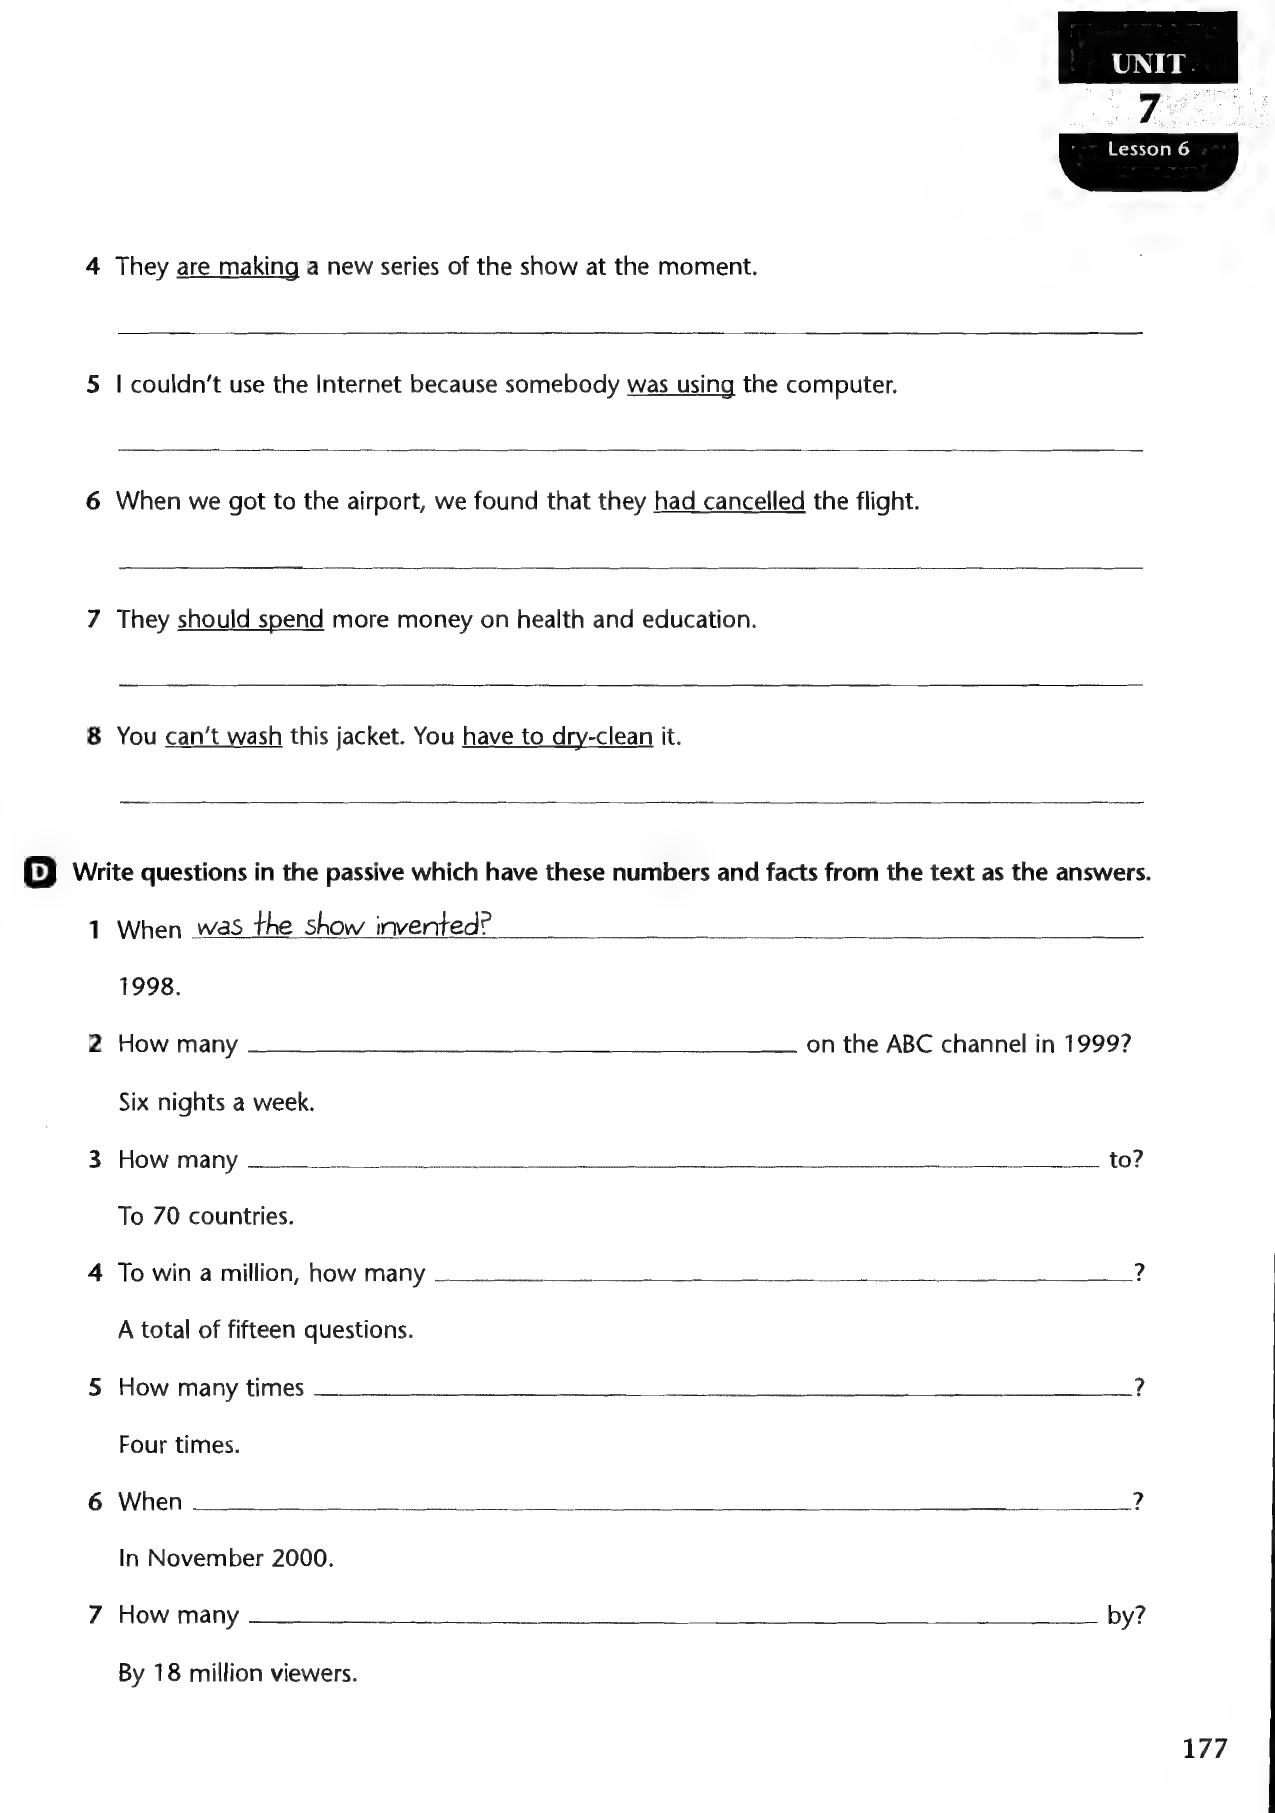 UNIT
7
Lesson 6
4 They are making a new series of the show at the moment.
5 I couldn't use the Internet because somebody was using the computer.
6 When we got to the airport, we found that they had cancelled the flight.
7 They should spend more money on health and education.
8 You can't wash this jacket. You have to dry-clean it.
D Write questions in the passive which have these numbers and facts from the text as the answers.
1 When was the show invented?
1998.
2 How many ____ on the ABC channel in 1999?
Six nights a week.
3 How many ____ to?
To 70 countries.
4 To win a million, how many ____?
A total of fifteen questions.
5 How many times ____?
Four times.
6 When ____?
In November 2000.
7 How many ____ by?
By 18 million viewers.
177